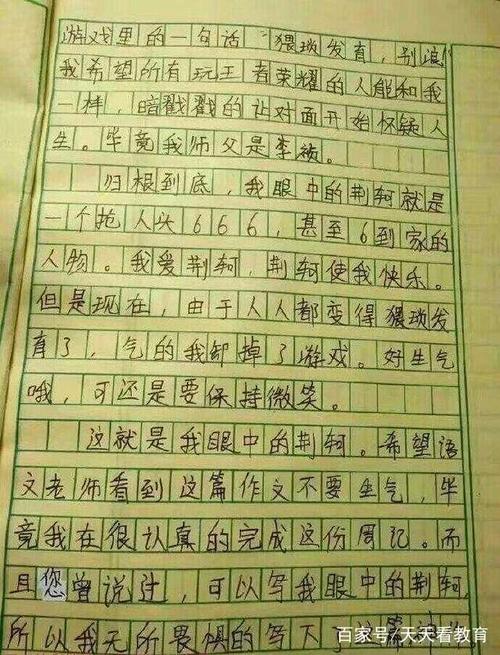 游戏里的一句话“猥琐发育，别浪”
我希望所有玩王者荣耀的人能和我
一样，暗戳戳的让对面开始怀疑人
生。毕竟我师父是李祯。
归根到底，我眼中的荆轲就是
一个抢人头666，甚至6到家的
人物。我爱荆轲，荆轲使我快乐。
但是现在，由于人人都变得猥琐发
育了，气的我卸掉了游戏。好生气
哦，可还是要保持微笑。
这就是我眼中的荆轲。希望语
文老师看到这篇作文不要生气，毕
竟我在很认真的完成这份周记。而
且您曾说过，可以写我眼中的荆轲，
所以我无所畏惧的写下了这篇
百家号/天天看教育